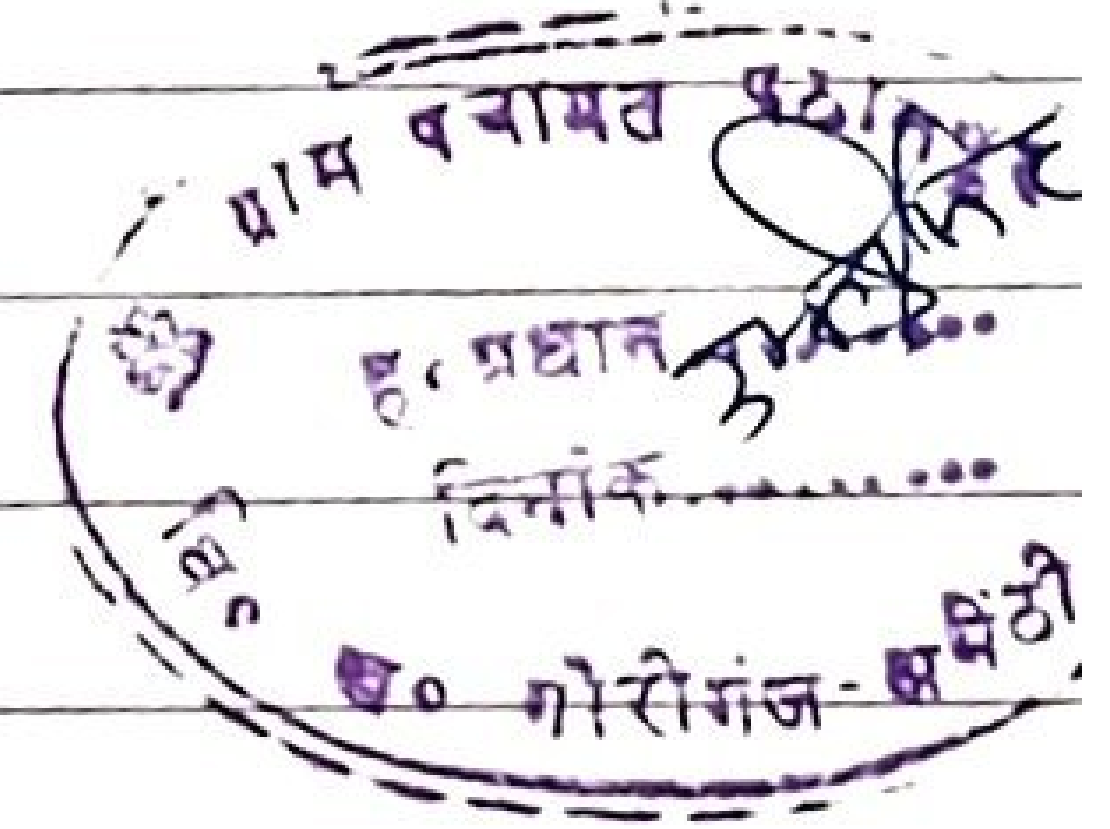 ग्राम पंचायत
ह. प्रधान
दिनांक............
वि० ख० गौरीगंज-अमेठी